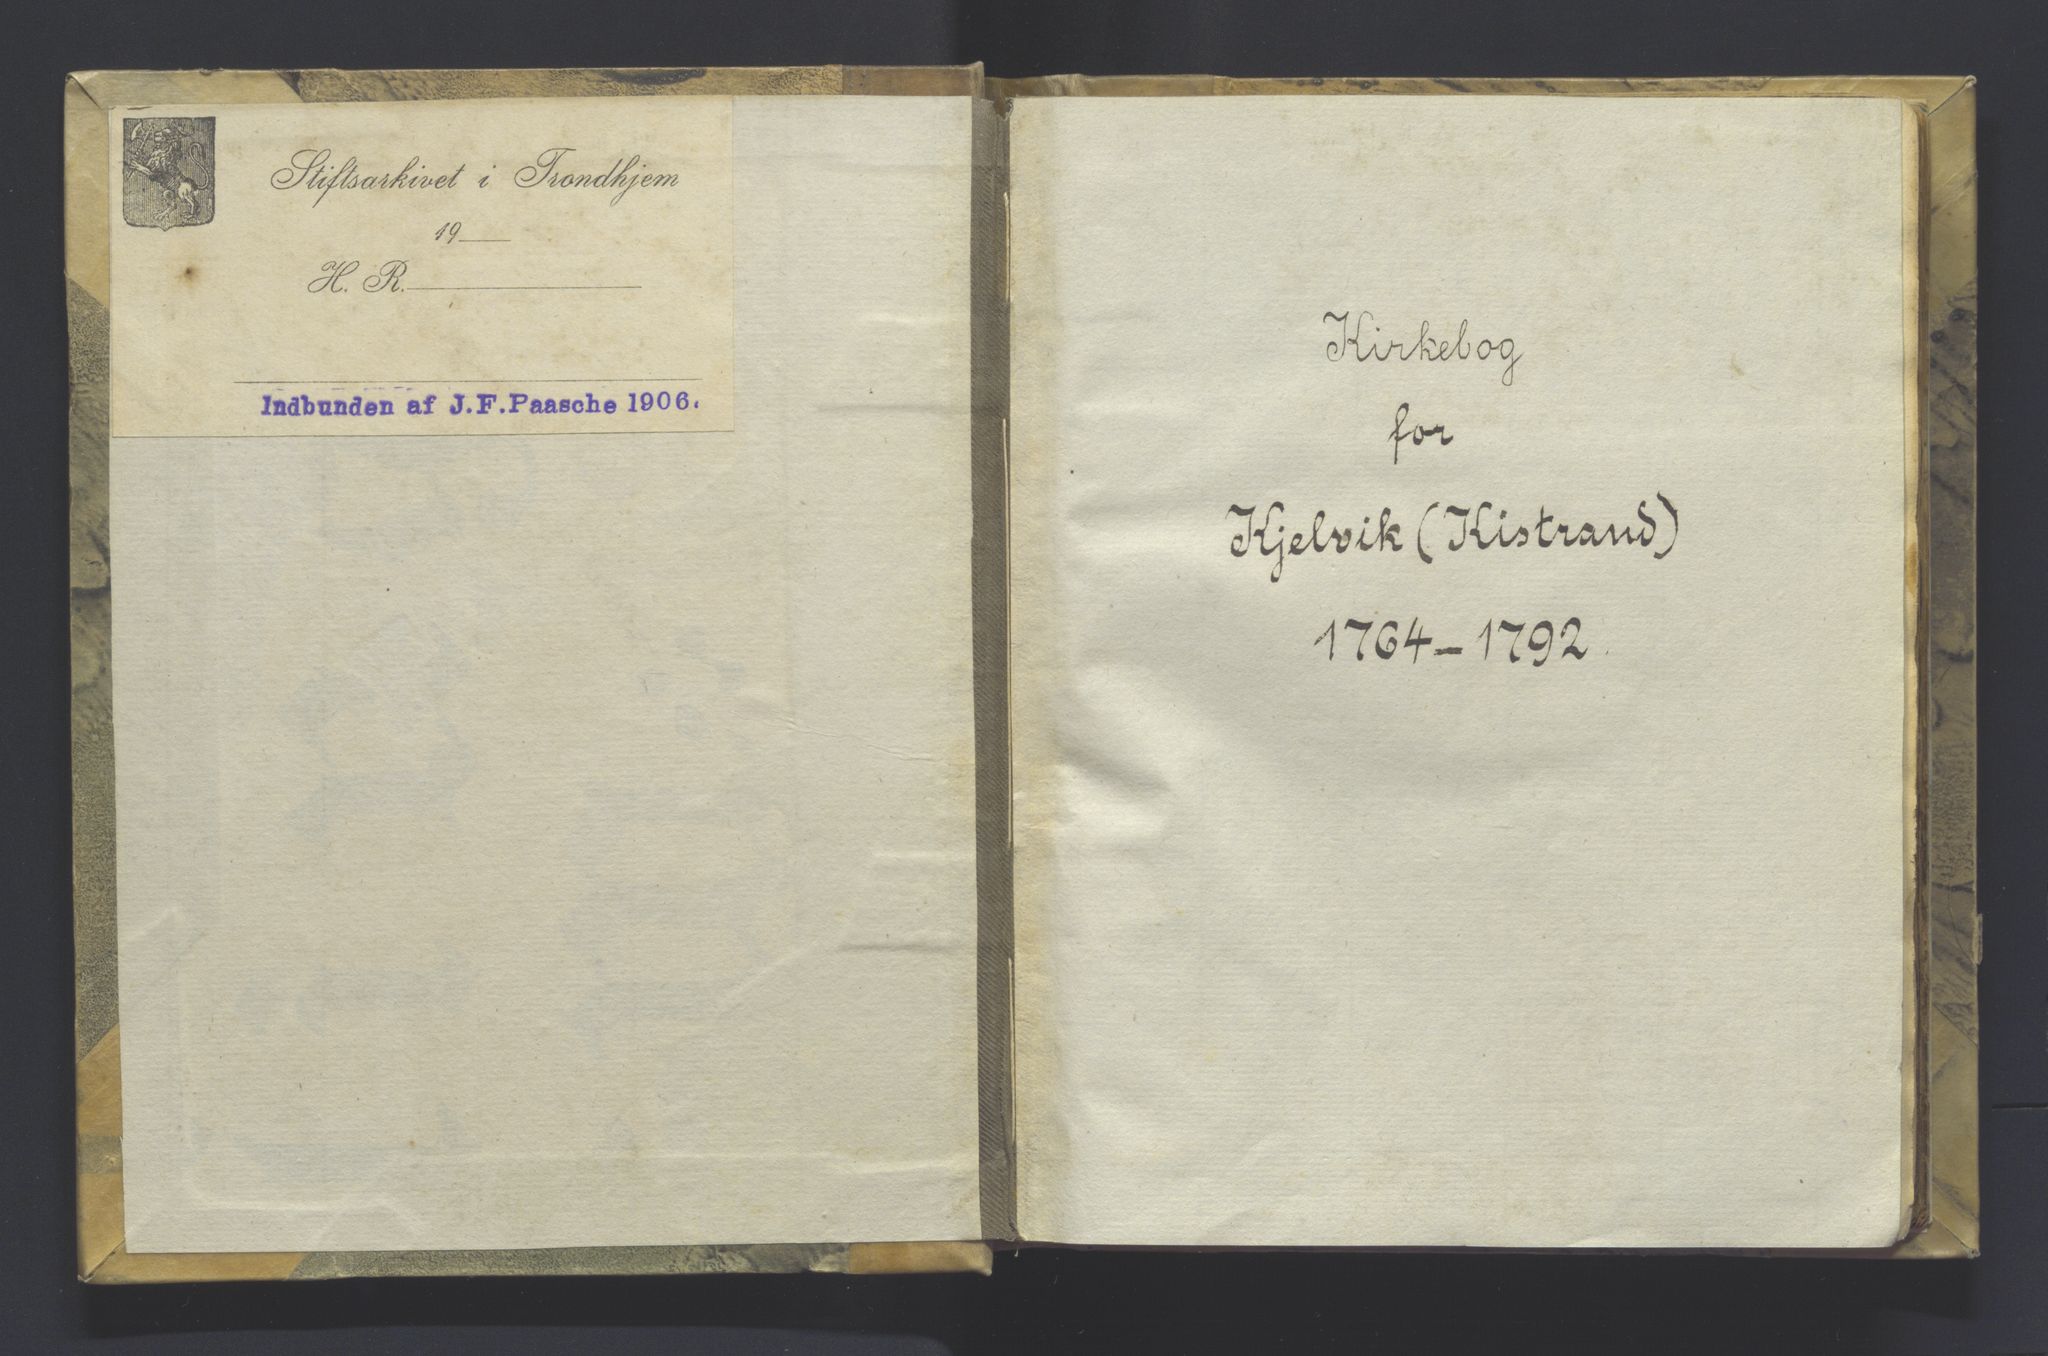 Stiftsarkivet i Trondhjem
19
H. R.
Indbunden af J.F.Paasche 1906.
Kirkebog
for
Kjelvik (Kistrand)
1764-1792